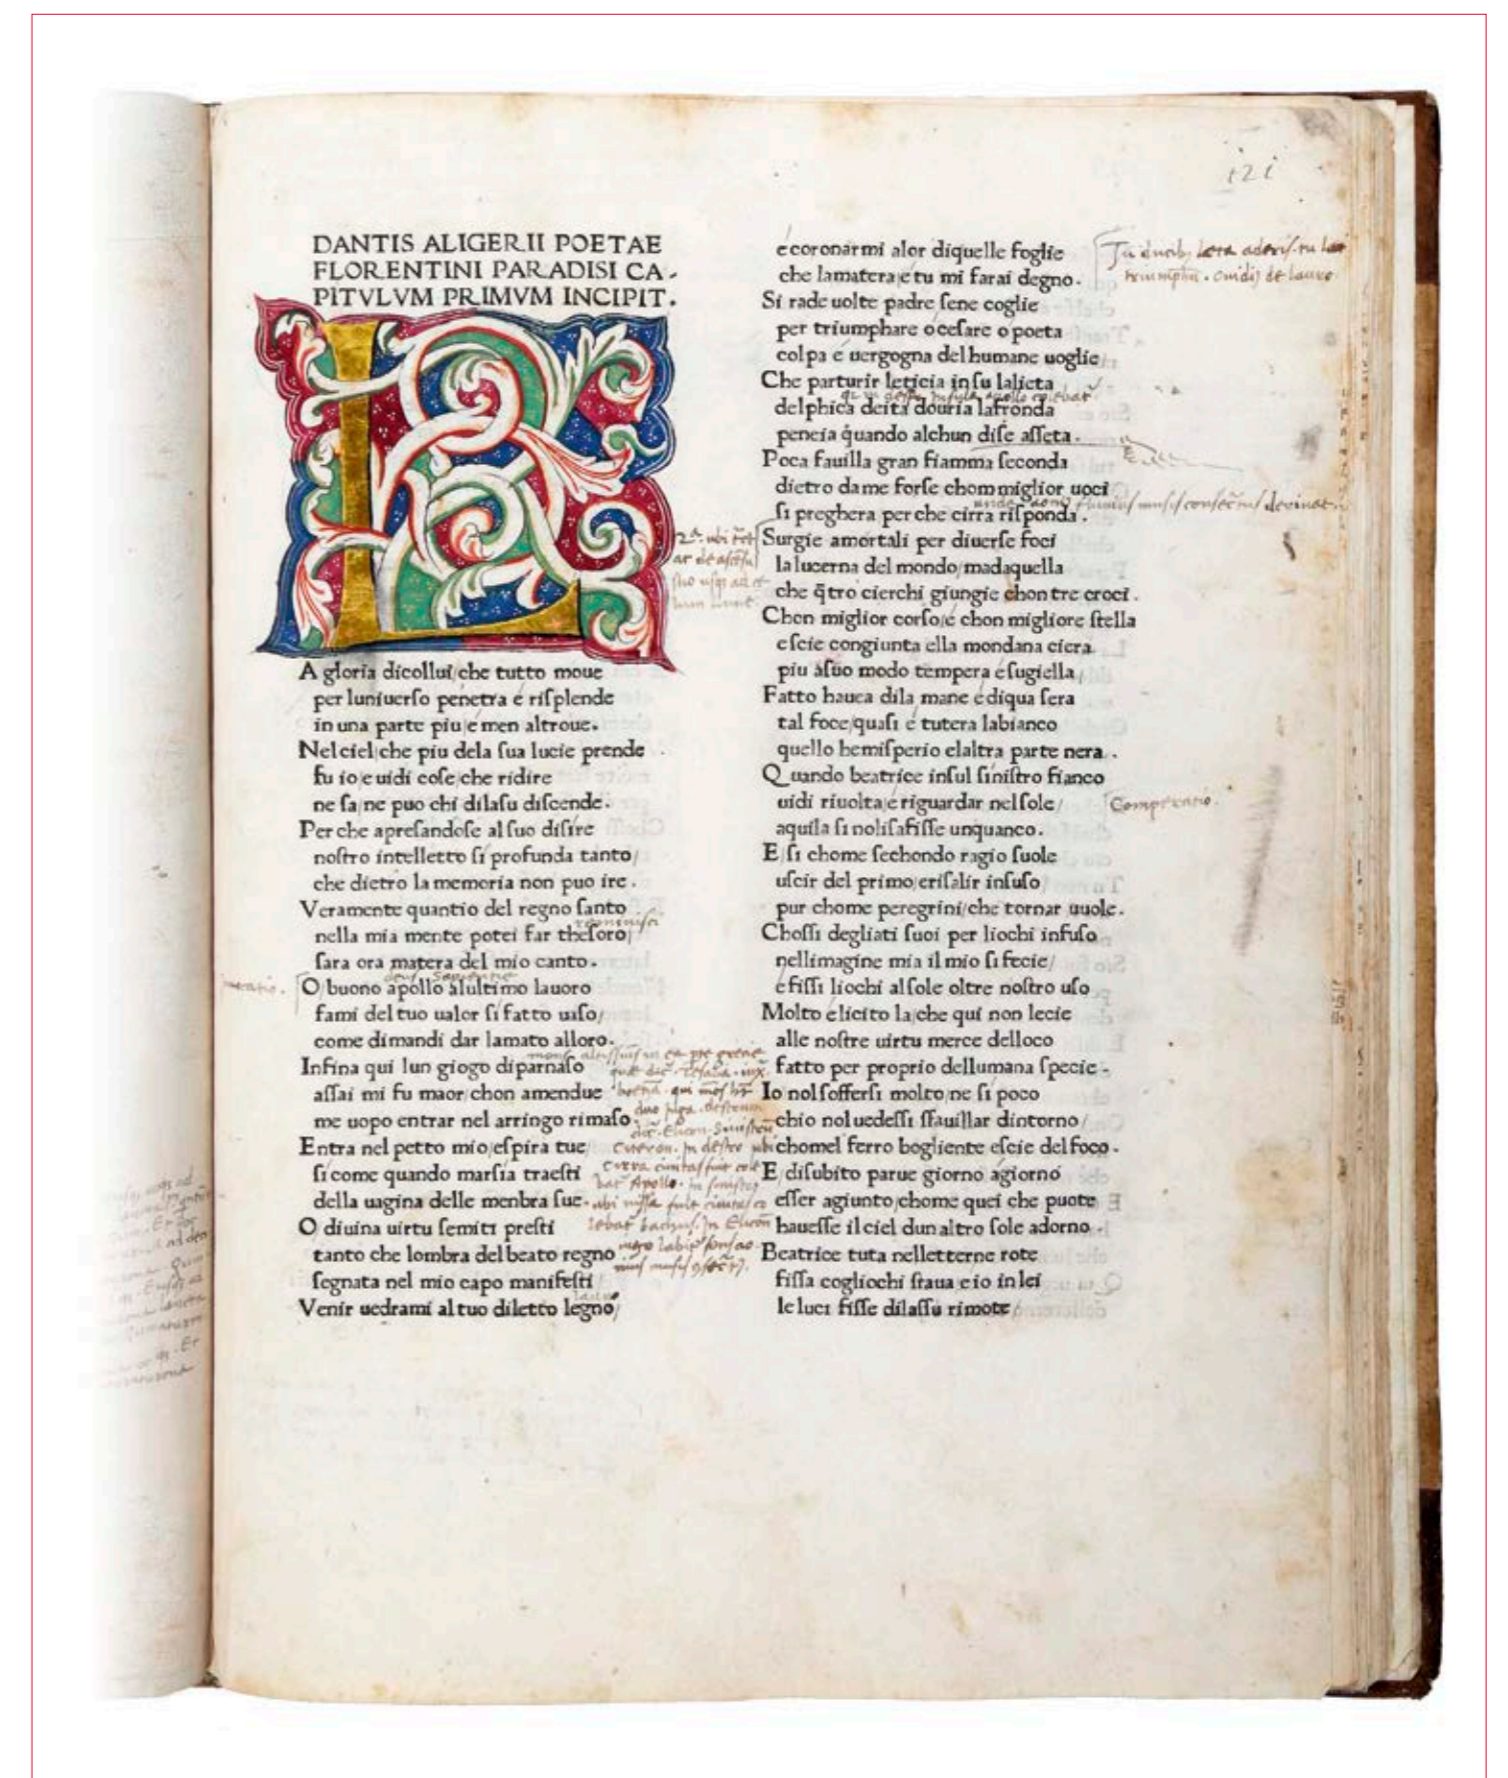 121
DANTIS ALIGERII POETAE
FLORENTINI PARADISI CA-
PITVLVM PRIMVM INCIPIT.
L
A gloria dicollui/che tutto moue
per luniuerso penetra e risplende
in una parte piu/e men altroue.
Nelciel/che piu dela sua lucie prende
fu io/e uidi cose/che ridire
ne sa/ne puo chi dilasu discende.
Per che apresandose al suo disire
nostro intelletto si profunda tanto/
che dietro la memoria non puo ire.
Veramente quantio del regno santo
nella mia mente potei far thesoro/
sara ora matera del mio canto.
O buono apollo alultimo lauoro
fami del tuo ualor si fatto uaso/
come dimandi dar lamato alloro.
Infina qui lun giogo diparnaso
assai mi fu maor/chon amendue
me uopo entrar nel arringo rimaso.
Entra nel petto mio/espira tue
si come quando marsia traesti
della uagina delle menbra sue.
O diuina uirtu semiti presti
tanto che lombra del beato regno
segnata nel mio capo manifesti
Venir uedrami al tuo diletto legno/
e coronarmi alor diquelle foglie
che lamatera/e tu mi farai degno.
Si rade uolte padre sene coglie
per triumphare o cesare o poeta
colpa e uergogna del humane uoglie
Che parturir leticia in su lalieta
delphica deita douria lafronda
peneia q̃uando alchun dise asseta.
Poca fauilla gran fiamma seconda
dietro da me forse chom miglior uoci
si preghera per che cirra risponda.
Surgie amortali per diuerse foci
la lucerna del mondo/madaquella
che q̃tro cierchi giungie chon tre croci.
Chon miglior corso/e chon migliore stella
escie congiunta ella mondana ciera
piu asuo modo tempera e sugiella/
Fatto hauea dila mane e diqua sera
tal foce/quasi e tutera labianco
quello hemisperio elaltra parte nera.
Quando beatrice insul sinistro fianco
uidi riuolta/e riguardar nelsole/
Comperatio.
aquila si nolisafisse unquanco.
E/si chome sechondo ragio suole
uscir del primo/erisalir insuso
pur chome peregrini/che tornar uuole.
Chossi degliati suoi per liochi infuso
nellimagine mia il mio si fecie/
e fissi liochi alsole oltre nostro uso
Molto e licito la/che qui non lecie
alle nostre uirtu merce delloco
fatto per proprio dellumana specie-
Io nol soffersi molto/ne si poco
chio nol uedessi sfauillar dintorno/
chomel ferro bogliente escie del foco.
E/disubito parue giorno agiorno
esser agiunto/chome quei che puote
hauesse il ciel dun altro sole adorno.
Beatrice tuta nelletterne rote
fissa cogliochi staua e io in lei
le luci fisse dilassu rimote/